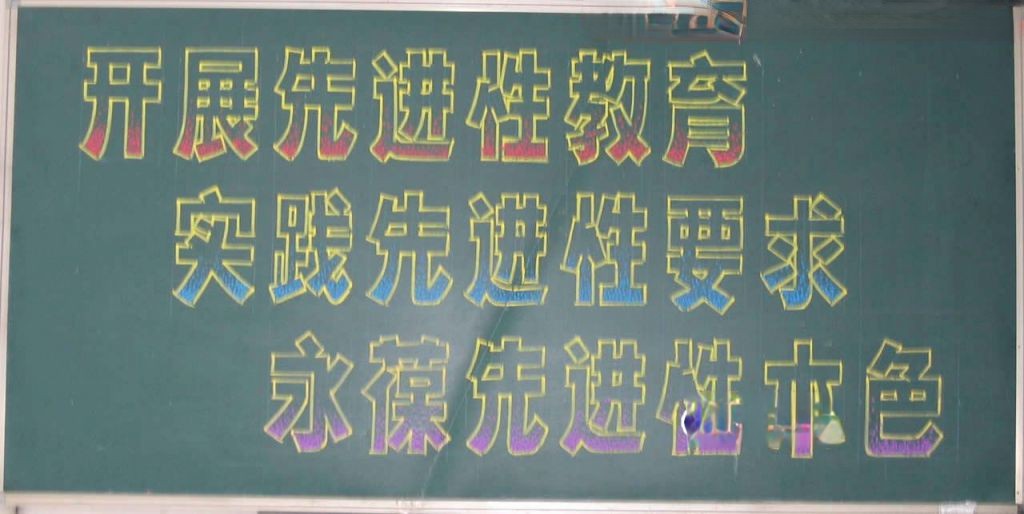 开展先进性教育
实践先进性要求
永葆先进性本色